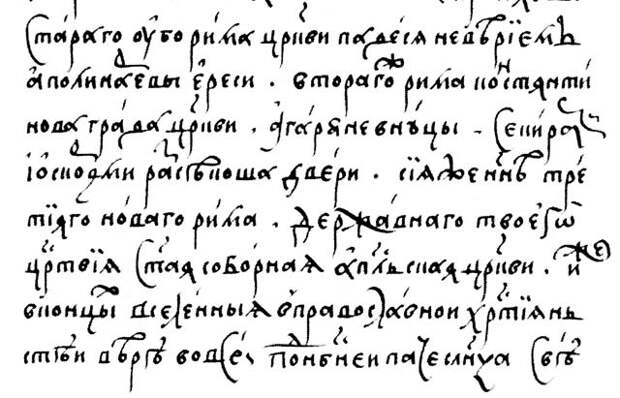 Стараго ꙋбо рима цр҃кви падеся невѣрїемъ
аполинаⷬ҇евы ереси . втораго рима коⷭ҇стянти
нова града цр҃кви . агаряне внꙋцы . секираⷨи
і оскоⷬдми разсѣкоша двери . сїя же нн҃ѣ тре
тїяго новаго рима . державнаго твоегѡ
црⷭ҇твїя ст҃ая соборная апⷭ҇льская цр҃кви . иже
в концыⷯ вселенныя в православнои хрⷭ҇тїянь
стѣи вѣрѣ во всеи поⷣнбⷭ҇нѣи паче слн҃ца свѣ